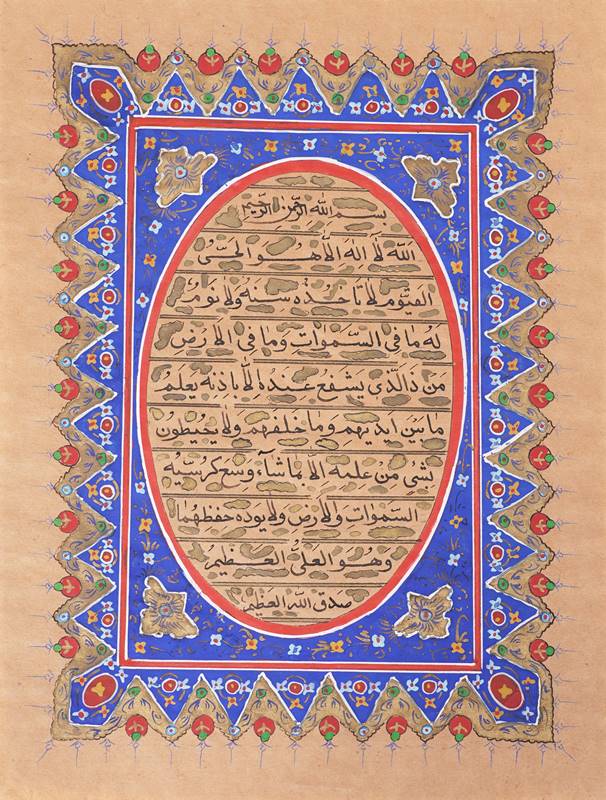 بسم الله الرحمن الرحيم
الله لا اله الا هو الحي
القيوم لا تاخذه سنة ولا نوم
له ما في السموات وما في الارض
من ذالذي يشفع عنده الا باذنه يعلم
ما بين ايديهم وما خلفهم ولا يحيطون
بشئ من علمه الا بما شاء وسع كرسيه
السموات والارض ولا يوده حفظهما
وهو العلي العظيم
صدق الله العظيم